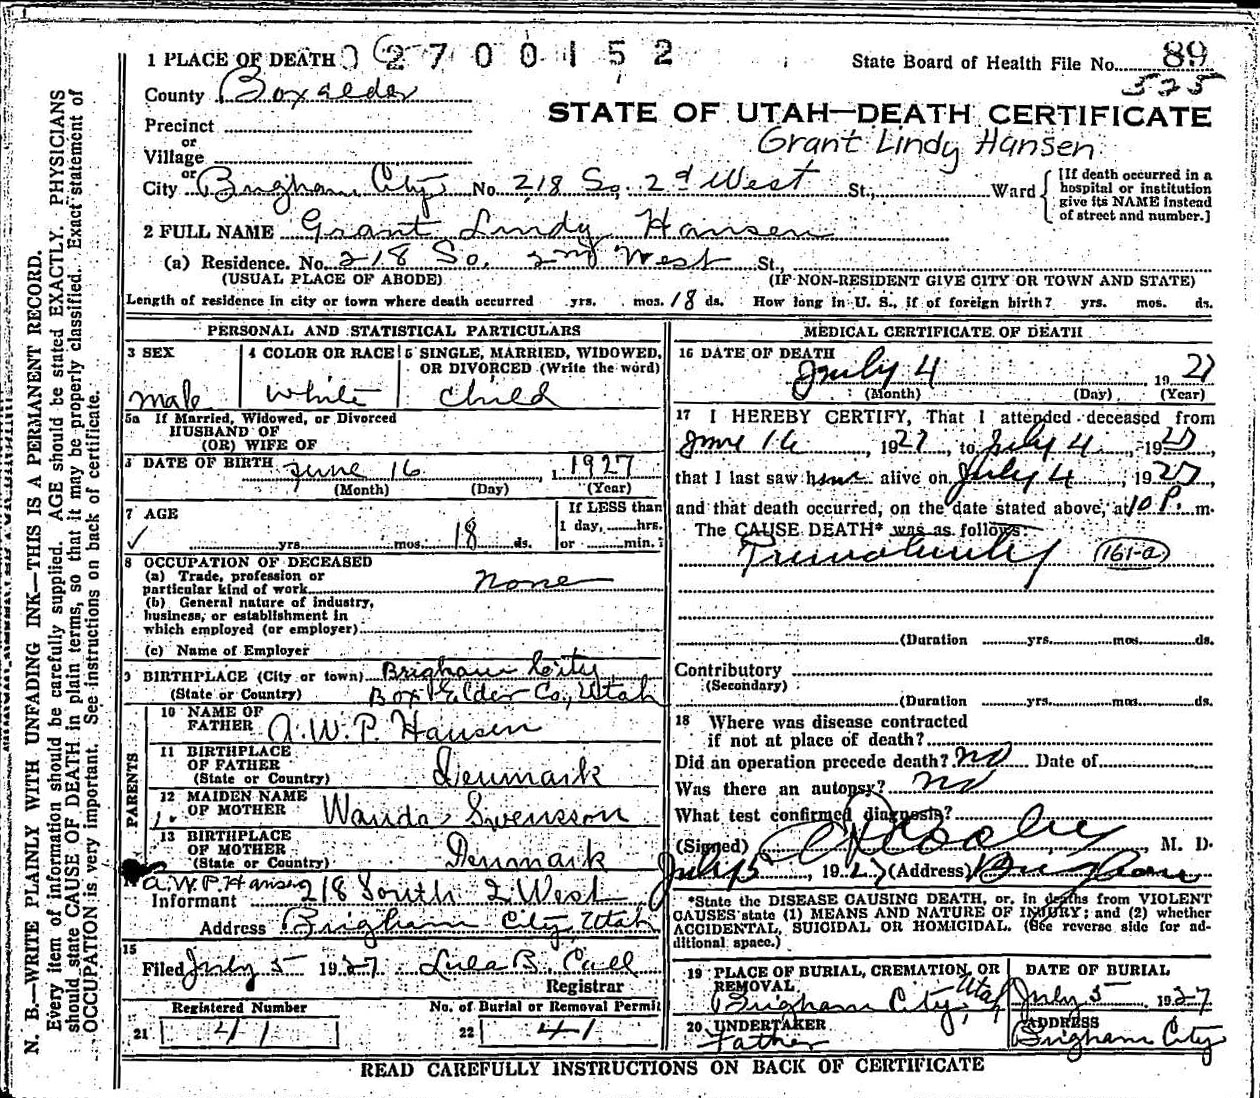 1 PLACE OF DEATH 02700152
State Board of Health File No. 89
525
County Boxelder
STATE OF UTAH—DEATH CERTIFICATE
Precinct
Grant Lindy Hansen
or
Village
or
City Brigham City No. 218 So. 2d West St., Ward
[If death occurred in a hospital or institution give its NAME instead of street and number.]
2 FULL NAME Grant Lindy Hansen
(a) Residence. No. 218 So. 2nd West St.,
(USUAL PLACE OF ABODE) (IF NON-RESIDENT GIVE CITY OR TOWN AND STATE)
Length of residence in city or town where death occurred yrs. mos. 18 ds. How long in U. S., if of foreign birth? yrs. mos. ds.
PERSONAL AND STATISTICAL PARTICULARS
3 SEX 4 COLOR OR RACE 5 SINGLE, MARRIED, WIDOWED,
OR DIVORCED (Write the word)
male White Child
5a If Married, Widowed, or Divorced
HUSBAND OF
(OR) WIFE OF
DATE OF BIRTH June 16, 1927
(Month) (Day) (Year)
7 AGE If LESS than
1 day, hrs.
yrs. mos. 18 ds. or min.
8 OCCUPATION OF DECEASED
(a) Trade, profession or
particular kind of work None
(b) General nature of industry,
business, or establishment in
which employed (or employer)
(c) Name of Employer
9 BIRTHPLACE (City or town) Brigham City
(State or Country) Box Elder Co., Utah
PARENTS
10 NAME OF
FATHER A. W. P. Hansen
11 BIRTHPLACE
OF FATHER
(State or Country) Denmark
12 MAIDEN NAME
OF MOTHER Wanda Swensson
13 BIRTHPLACE
OF MOTHER
(State or Country) Denmark
A.W.P. Hansen 218 South 2 West
Informant
Address Brigham City, Utah
15
Filed July 5 1927 Lula B. Call
Registrar
Registered Number No. of Burial or Removal Permit
21 41 22 41
MEDICAL CERTIFICATE OF DEATH
16 DATE OF DEATH
July 4 1927
(Month) (Day) (Year)
17 I HEREBY CERTIFY, That I attended deceased from
June 16, 1927, to July 4, 1927,
that I last saw him alive on July 4, 1927,
and that death occurred, on the date stated above, at 10 P. m.
The CAUSE DEATH* was as follows:
Prematurity (161-a)
(Duration yrs. mos. ds.
Contributory
(Secondary)
(Duration yrs. mos. ds.
18 Where was disease contracted
if not at place of death?
Did an operation precede death? no Date of
Was there an autopsy? no
What test confirmed diagnosis?
(Signed) M. D.
July 5, 1927 (Address) Brigham
*State the DISEASE CAUSING DEATH, or, in deaths from VIOLENT
CAUSES state (1) MEANS AND NATURE OF INJURY; and (2) whether
ACCIDENTAL, SUICIDAL OR HOMICIDAL. (See reverse side for ad-
ditional space.)
19 PLACE OF BURIAL, CREMATION, OR REMOVAL DATE OF BURIAL
Brigham City, Utah July 5 1927
20 UNDERTAKER ADDRESS
Father Brigham City
READ CAREFULLY INSTRUCTIONS ON BACK OF CERTIFICATE
N. B.—WRITE PLAINLY WITH UNFADING INK—THIS IS A PERMANENT RECORD.
Every item of information should be carefully supplied. AGE should be stated EXACTLY. PHYSICIANS
should state CAUSE OF DEATH in plain terms, so that it may be properly classified. Exact statement of
OCCUPATION is very important. See instructions on back of certificate.